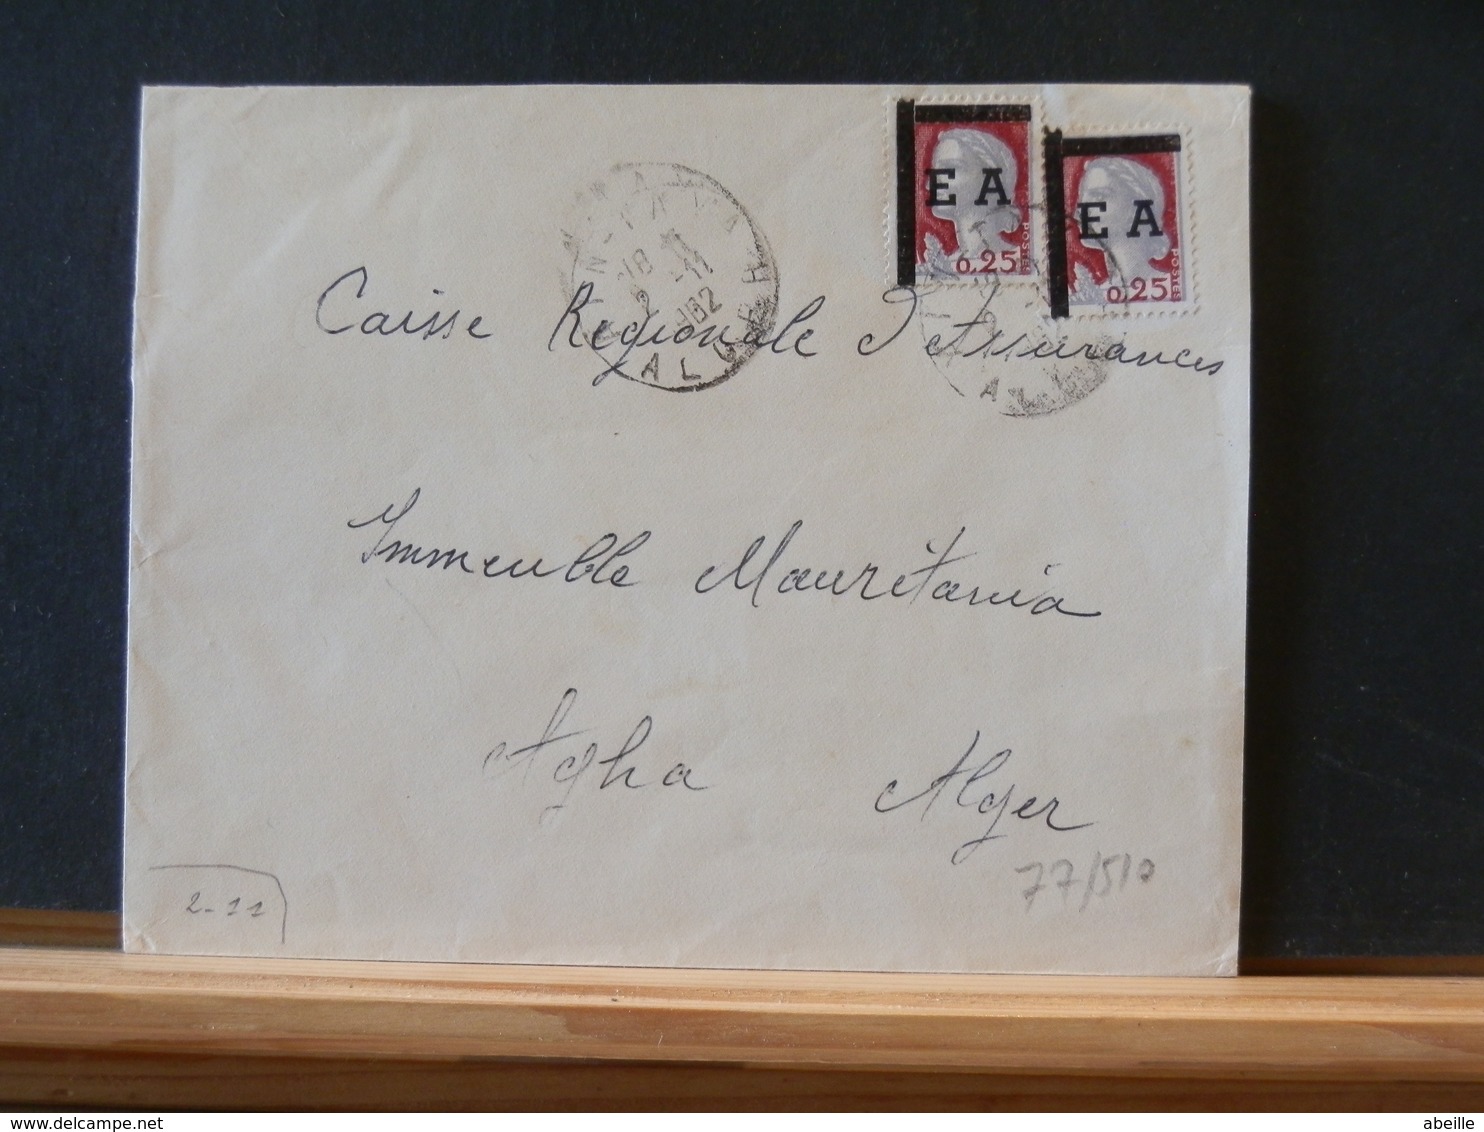 EA
0,25
POSTES
EA
0,25
POSTES
18
2 -11
1962
ALGER
Caisse Regionale d'Assurances
Immeuble Mauritania
Agha Alger
77/510
2-11
abeille